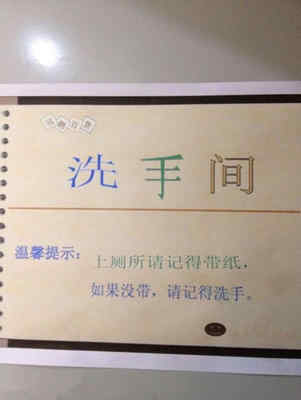 洗手间
温馨提示：
上厕所请记得带纸，
如果没带，请记得洗手。